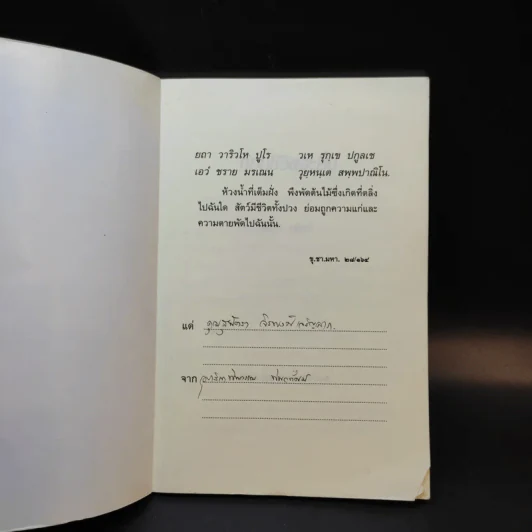 ยถา วาริวโห ปูโร วเห รุกฺเข ปกูลเช
เอวํ ชราย มรเณน วุยฺหนฺเต สพฺพปาณิโน.
ห้วงน้ำที่เต็มฝั่ง พึงพัดต้นไม้ซึ่งเกิดที่ตลิ่ง
ไปฉันใด สัตว์มีชีวิตทั้งปวง ย่อมถูกความแก่และ
ความตายพัดไปฉันนั้น.
ขุ.ชา.มหา. ๒๘/๑๖๔
แด่
จาก